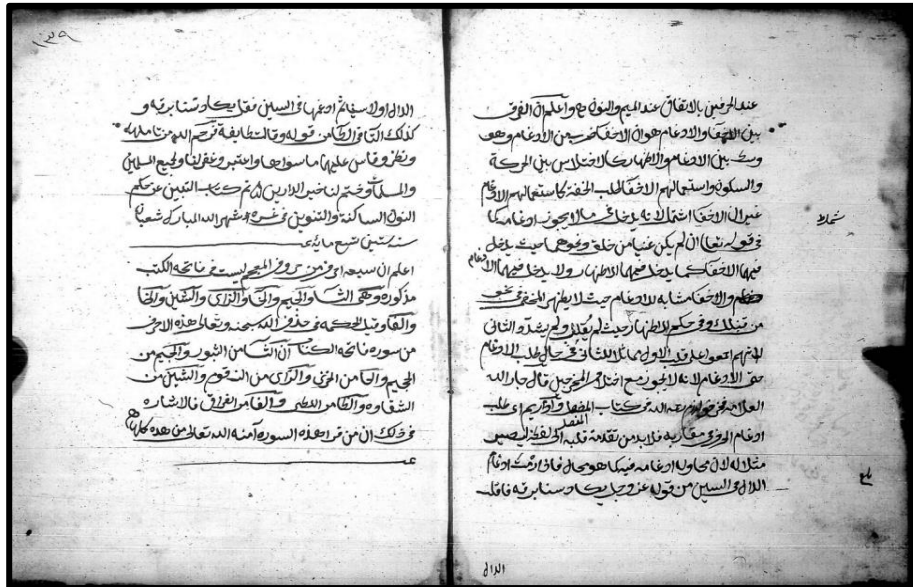 عند الحرفين بالاتفاق عند الميم والنون واعلم ان الفرق
بين الاخفا والادغام هو ان الاخفا ضرب من الادغام وهو
بين الادغام والاظهار كالاختلاس بين الحركة
والسكون واستعمالهم الاخفا لطلب الخفة كاستعمالهم الادغام
غير ان الاخفا اشمل لانه يدخل في ما لا يجوز ادغامه كما
شملا
في قوله تعالى ان لم يكن غنيا من خلق ونحوهما حيث يدخل
فيهما الاخفا كما يدخل فيهما الاظهار ولا يدخل فيهما الادغام
والاخفا مشابه للادغام حيث لا يظهر المخفى في نحو
من قبلك وفي حكم الاظهار حيث لم يقلب ولم يشدد الثاني
لانهم اجمعوا على قلب الاول مماثلا للثاني في حال طلب الادغام
حق الادغام لانه لا يجوز مع اختلاف المخرجين قال جار الله
العلامه فخر خوارزم رحمه الله في كتاب المفصل واذا ريم اي طلب
المفصل
ادغام الحرف في مقاربه فلا بد من تقدمة قلبه الى لفظه ليصير
مثلا له لان محاولة ادغامه فيه كما هو محال فاذا رمت ادغام
الدال في السين من قوله عز وجل يكاد سنا برقه فاقلب
الدال
١٣٩
الدال اولا سينا ثم ادغمها في السين فقل يكاد سنا برقه و
كذلك التا في الطا من قوله وقالت طايفة فرحم الله من تاملها
ونظر وقاس عليها ما سواها واعتبر وغفر لنا ولجميع المسلمين
والمسلمات وختم لنا بخير الدارين تم كتاب التبيين عن حكم
النون الساكنة والتنوين في غرة اشهر الله المبارك شعبان
سنه ستين تسع مايه
اعلم ان سبعه احرف من حروف المعجم ليست في فاتحه الكتب
مذكوره وهي الثا والجيم والخا والزاى والشين والظا
والفا وقيل الحكمه في حذف الله سبحنه وتعالى هذه الاحرف
من سوره فاتحه الكتاب ان الثا من الثبور والجيم من
الجحيم والخا من الخزي والزاى من الزقوم والشين من
الشقاوه والظا من اللظى والفا من الفراق فالاشاره
في ذلك ان من قرا هذه السوره آمنه الله تعالى من هذه كلها